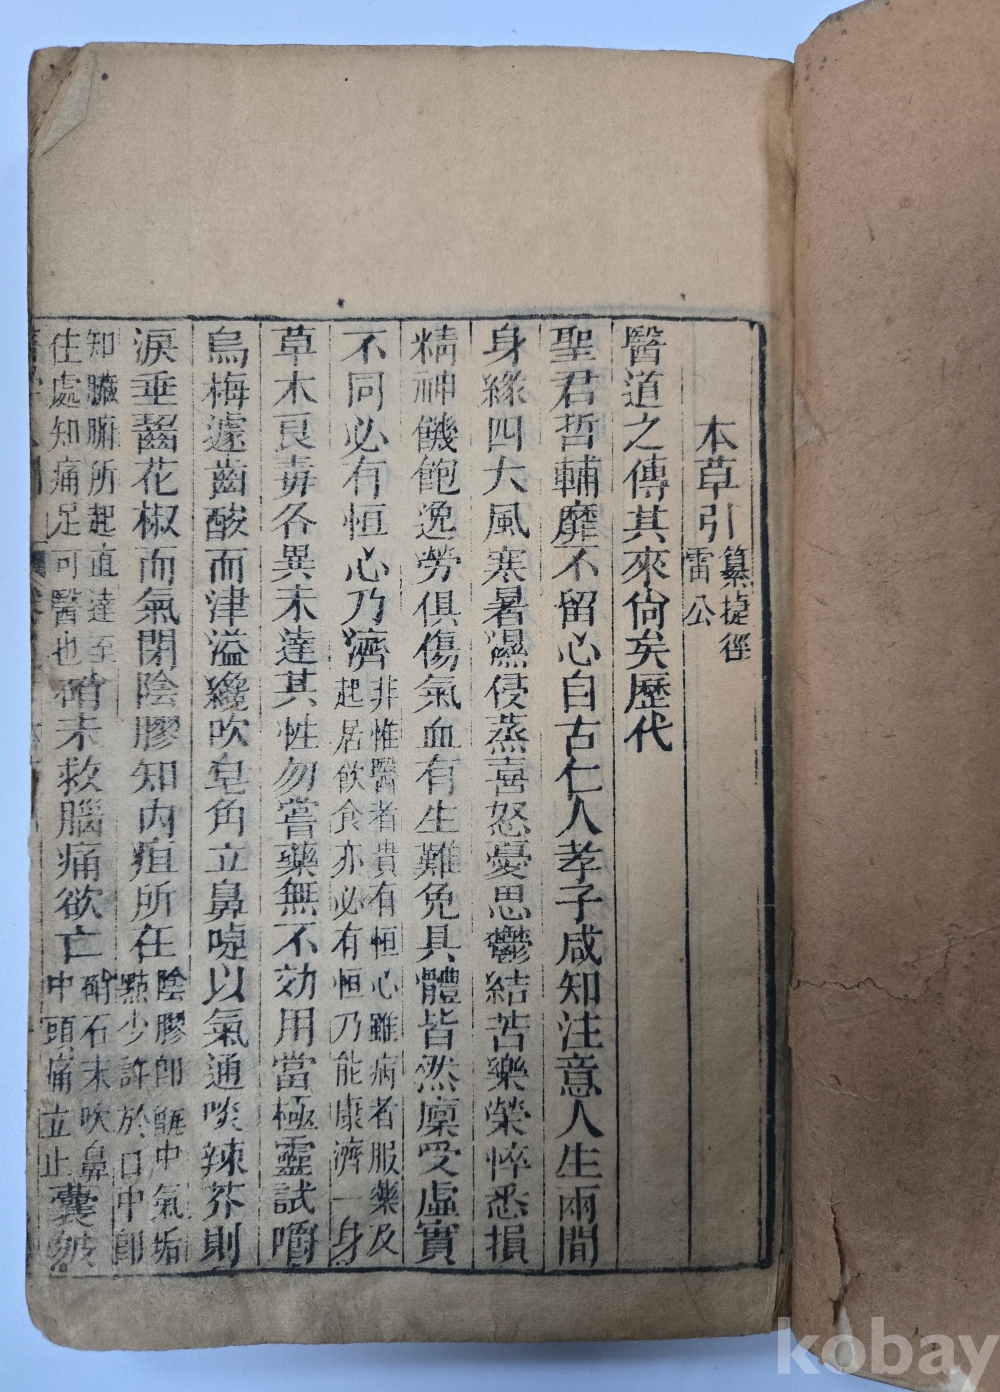 本草引
纂捷徑
雷公
醫道之傳其來尙矣歷代
聖君哲輔靡不留心自古仁人孝子咸知注意人生兩間
身緣四大風寒暑濕侵蒸喜怒憂思鬱結苦樂榮悴悉損
精神饑飽逸勞俱傷氣血有生難免具體皆然廩受虛實
不同必有恒心乃濟
非惟醫者貴有恒心雖病者服藥及
起居飮食亦必有恒乃能康濟一身
草木良毒各異未達其性勿嘗藥無不効用當極靈試嚼
烏梅遽齒酸而津溢纔吹皂角立鼻嚏以氣通啖辣芥則
淚垂齧花椒而氣閉陰膠知內疽所在
陰膠卽甑中氣垢
點少許於口中卽
知臟腑所起直達至
住處知痛足可醫也
硝末救腦痛欲亡
硝石末吹鼻
中頭痛立止
囊皺
kobay